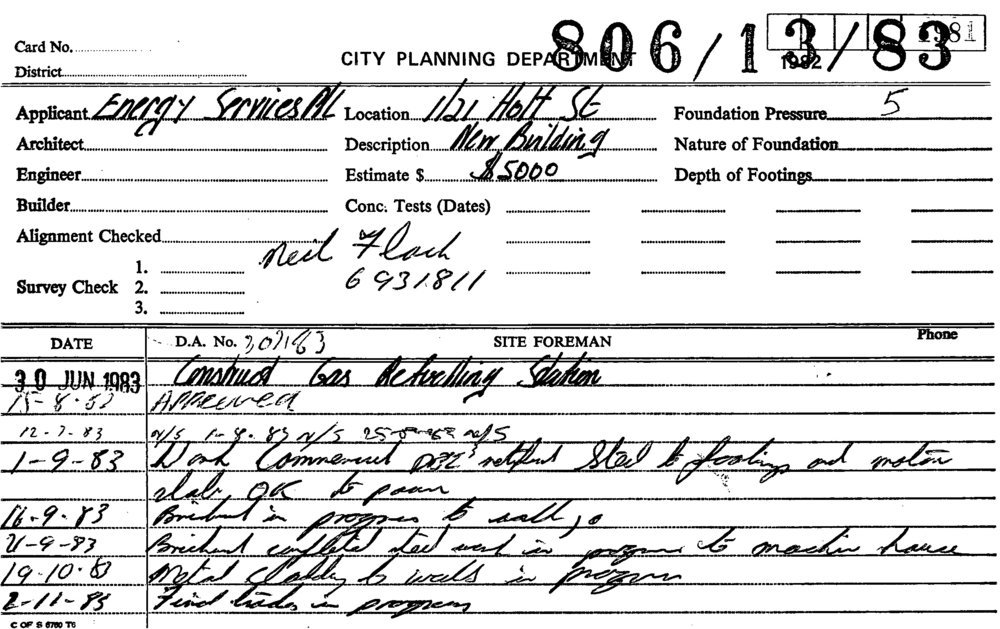 Card No.
CITY PLANNING DEPARTMENT
806/13/83
1981
1982
District
Applicant Energy Services P/L Location 1/21 Holt St Foundation Pressure 5
Architect Description New Building Nature of Foundation
Engineer Estimate $ $5000 Depth of Footings
Builder Conc. Tests (Dates)
Alignment Checked
Neil Flack
Survey Check 1. 2. 3.
6931811
DATE D.A. No. SITE FOREMAN Phone
30 JUN 1983 Construct Gas Refuelling Station
15-8-83 APPROVED
12-7-83 N/S 1-8-83 N/S N/S
1-9-83 Work Commenced Steel to footings and motor
slab, OK to pour
16-9-83 Brickwk in progress to walls
21-9-83 Brickwk completed steel work in progress to machine house
19-10-83 Metal cladding to walls in progress
2-11-83 Final trades in progress
C OF S 6760 T6